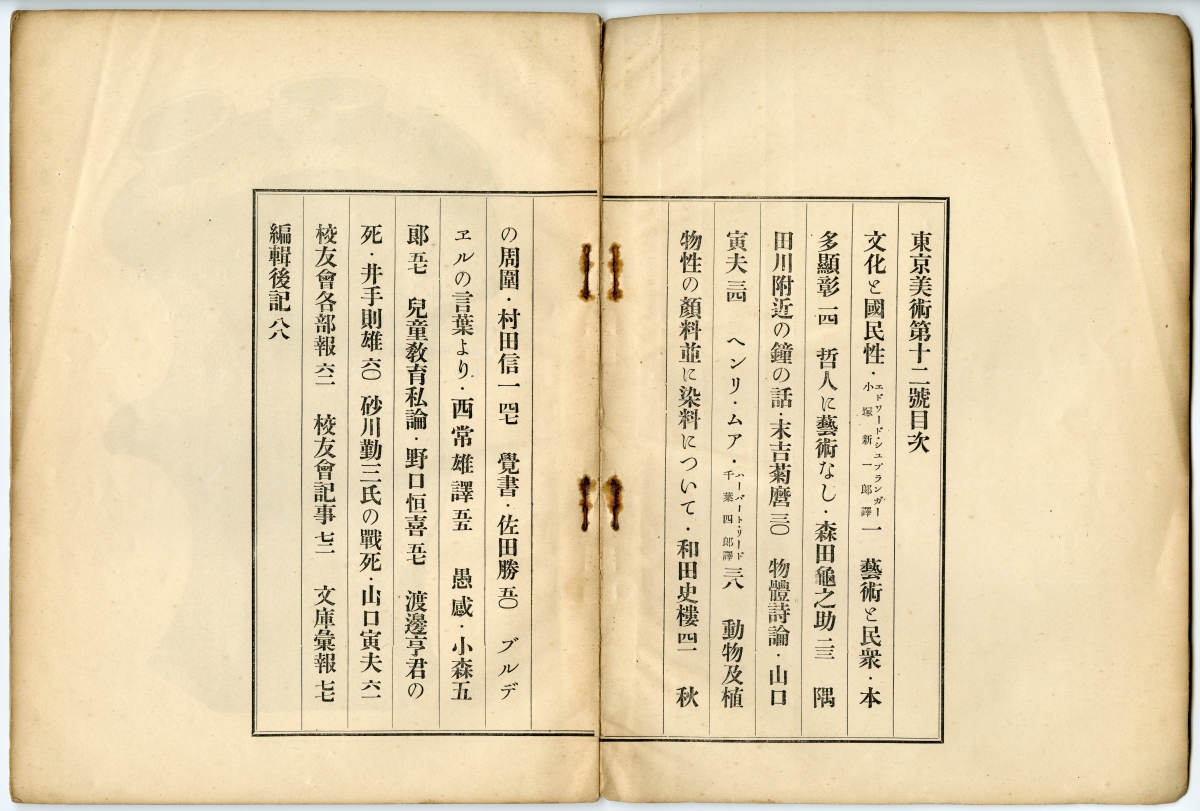 東京美術第十二號目次
文化と國民性・エドワード・シユプランガー 小塚新一郎譯 一　藝術と民衆・本
多顯彰 一四　哲人に藝術なし・森田龜之助 二三　隅
田川附近の鐘の話・末吉菊麿 三〇　物體詩論・山口
寅夫 三四　ヘンリ・ムア・ハーバート・リード 千葉四郎譯 三八　動物及植
物性の顏料並に染料について・和田史樓 四二　秋
の周圍・村田信一 四七　覺書・佐田勝 五〇　ブルデ
エルの言葉より・西常雄譯 五五　愚感・小森五
郎 五七　兒童敎育私論・野口恒喜 五七　渡邊亨君の
死・井手則雄 六〇　砂川勤三氏の戰死・山口寅夫 六一
校友會各部報 六二　校友會記事 七三　文庫彙報 七七
編輯後記 八八